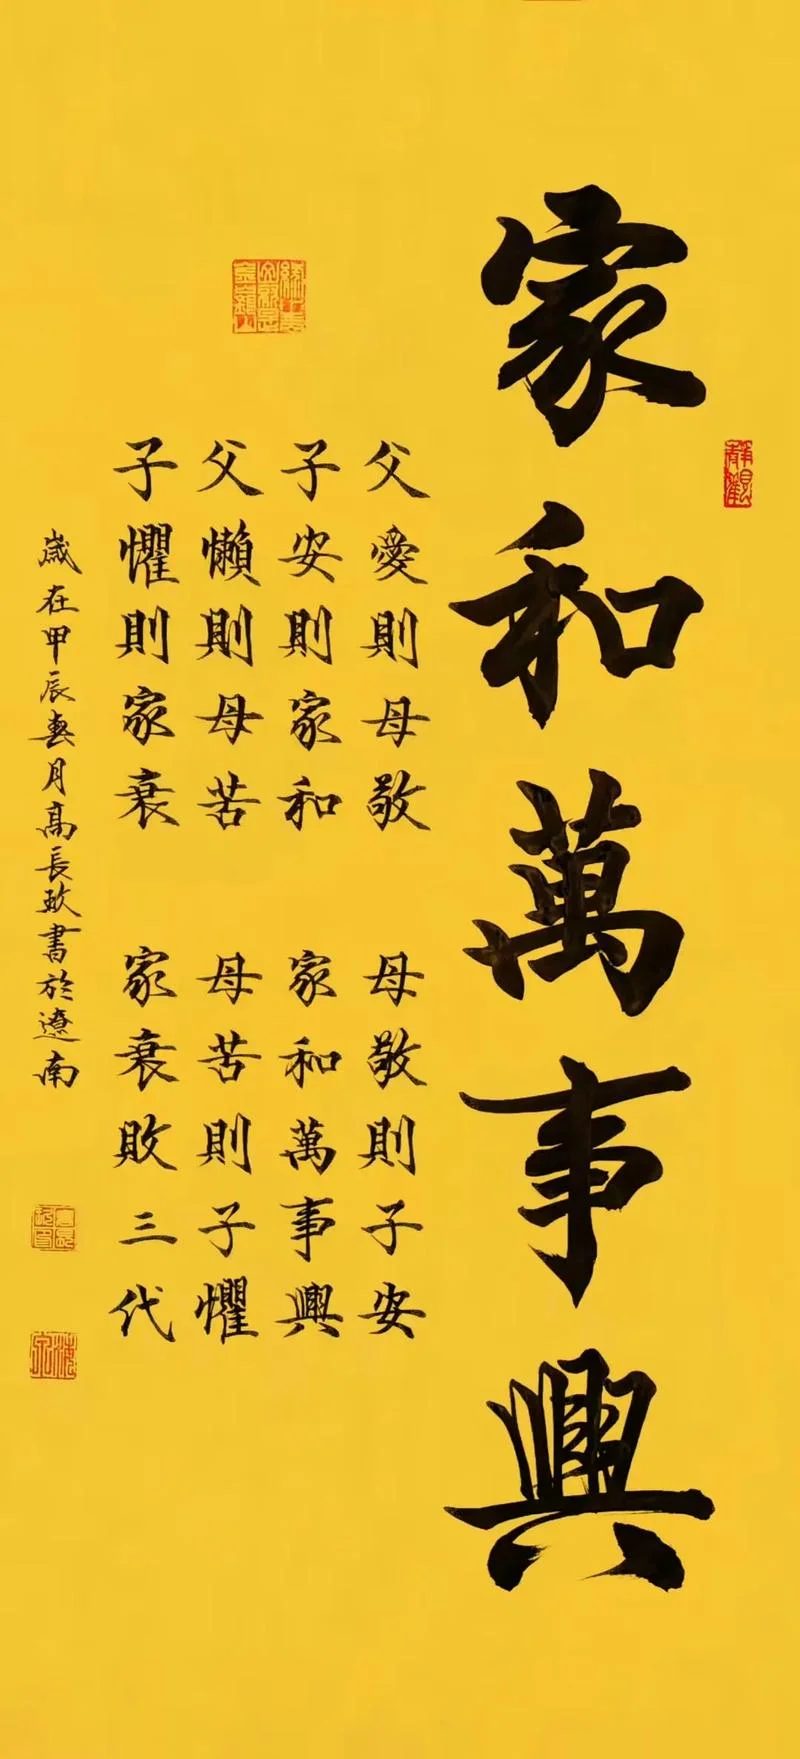 家和萬事興
父愛則母敬 母敬則子安
子安則家和 家和萬事興
父懶則母苦 母苦則子懼
子懼則家衰 家衰敗三代
歲在甲辰春月高長玖書於遼南